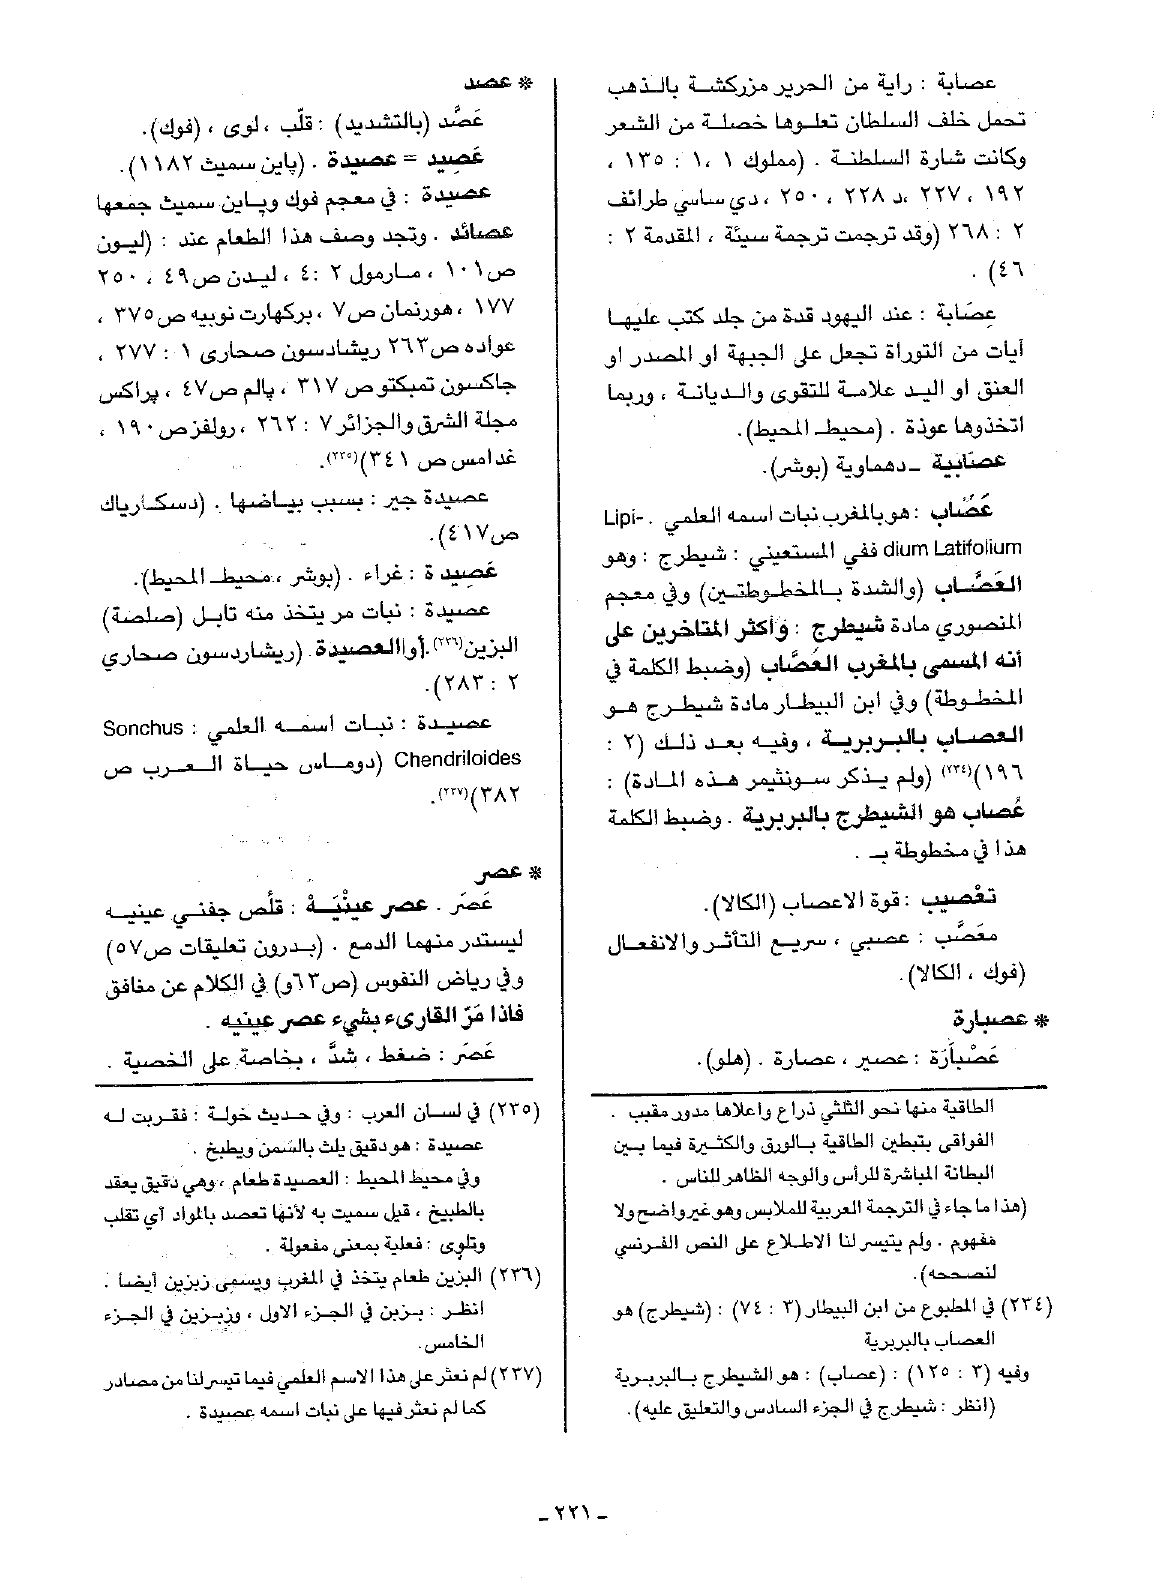 عصابة : راية من الحرير مزركشة بالذهب
تحمل خلف السلطان تعلوها خصلة من الشعر
وكانت شارة السلطنة . (مملوك ١ ،١ : ١٣٥ ،
١٩٢ ، ٢٢٧ ،د ٢٢٨ ، ٢٥٠ ، دي ساسي طرائف
٢ : ٢٦٨ (وقد ترجمت ترجمة سيئة ، المقدمة ٢ :
٤٦) .
عِصَابة : عند اليهود قدة من جلد كتب عليها
أيات من التوراة تجعل على الجبهة او المصدر او
العنق او اليد علامة للتقوى والديانة ، وربما
اتخذوها عوذة . (محيط المحيط).
عصابية ـ دهماوية (بوشر).
عَصَّاب : هو بالمغرب نبات اسمه العلمي . Lipi-
dium Latifolium ففي المستعيني : شيطرج : وهو
العَصَّاب (والشدة بالخطوطتين) وفي معجم
المنصوري مادة شيطرج : وأكثر المتاخرين على
أنه المسمى بالمغرب العُصَّاب (وضبط الكلمة في
المخطوطة) وفي ابن البيطار مادة شيطرج هو
العصاب بالبربرية ، وفيه بعد ذلك (٢ :
١٩٦)(٢٣٤) (ولم يذكر سونثيمر هذه المادة) :
عُصاب هو الشيطرج بالبربرية . وضبط الكلمة
هذا في مخطوطة بـ .
تعْصيب : قوة الاعصاب (الكالا).
معَصَّب : عصبي ، سريع التأثر والانفعال
(فوك ، الكالا).
* عصبارة
عَصْبارَة : عصير ، عصارة . (هلو).
الطاقية منها نحو الثلثي ذراع واعلاها مدور مقبب .
الفواقى بتبطين الطاقية بالورق والكثيرة فيما بين
البطانة المباشرة للرأس والوجه الظاهر للناس .
(هذا ما جاء في الترجمة العربية للملابس وهو غير واضح ولا
مفهوم . ولم يتيسر لنا الاطلاع على النص الفرنسي
لنصححه).
(٢٣٤) في المطبوع من ابن البيطار (٣ : ٧٤) : (شيطرج) هو
العصاب بالبربرية
وفيه (٣ : ١٢٥) : (عصاب) : هو الشيطرج بالبربرية
(انظر : شيطرج في الجزء السادس والتعليق عليه).
* عصد
عَصَّد (بالتشديد) : قلّب ، لوى ، (فوك).
عَصِيد = عصيدة . (پاين سميث ١١٨٢).
عصيدة : في معجم فوك وپاين سميث جمعها
عصائد . وتجد وصف هذا الطعام عند : (ليون
ص١٠١ ، مارمول ٢ :٤ ، ليدن ص٤٩ ، ٢٥٠
١٧٧ ، هورنمان ص٧ ، بركهارت نوبيه ص٣٧٥ ،
عواده ص٢٦٣ ريشادسون صحارى ١ : ٢٧٧ ،
جاكسون تمبكتو ص ٣١٧ ، پالم ص٤٧ ، پراكس
مجلة الشرق والجزائر ٧ : ٢٦٢ ، رولفز ص١٩٠ ،
غدامس ص ٣٤١)(٢٣٥).
عصيدة جير : بسبب بياضها . (دسكارياك
ص٤١٧).
عَصِيدة : غراء . (بوشر ، محيط المحيط).
عصيدة : نبات مر يتخذ منه تابل (صلصة)
البزين(٢٣٦). أو العصيدة . (ريشاردسون صحاري
٢ : ٢٨٣).
عصيدة : نبات اسمه العلمي : Sonchus
Chendriloides (دوماس حياة العرب ص
٣٨٢)(٢٣٧).
* عصر
عَصَر . عصر عينْيَهْ : قلّص جفني عينيه
ليستدر منهما الدمع . (بدرون تعليقات ص٥٧)
وفي رياض النفوس (ص٦٣و) في الكلام عن منافق
فاذا مَرّ القارىء بشيء عصر عينيه .
عَصَر : ضغط ، شدَّ ، بخاصة على الخصية .
(٢٣٥) في لسان العرب : وفي حديث خولة : فقربت له
عصيدة : هو دقيق يلث بالسَمن ويطبخ .
وفي محيط المحيط : العصيدة طعام ، وهي دقيق يعقد
بالطبيخ ، قيل سميت به لأنها تعصد بالمواد أي تقلب
وتلوى : فعلية بمعنى مفعولة .
(٢٣٦) البزين طعام يتخذ في المغرب ويسمى زبزين أيضا .
انظر : بزين في الجزء الاول ، وزبزين في الجزء
الخامس.
(٢٣٧) لم نعثر على هذا الاسم العلمي فيما تيسر لنا من مصادر
كما لم نعثر فيها على نبات اسمه عصيدة .
ـ ٢٢١ ـ